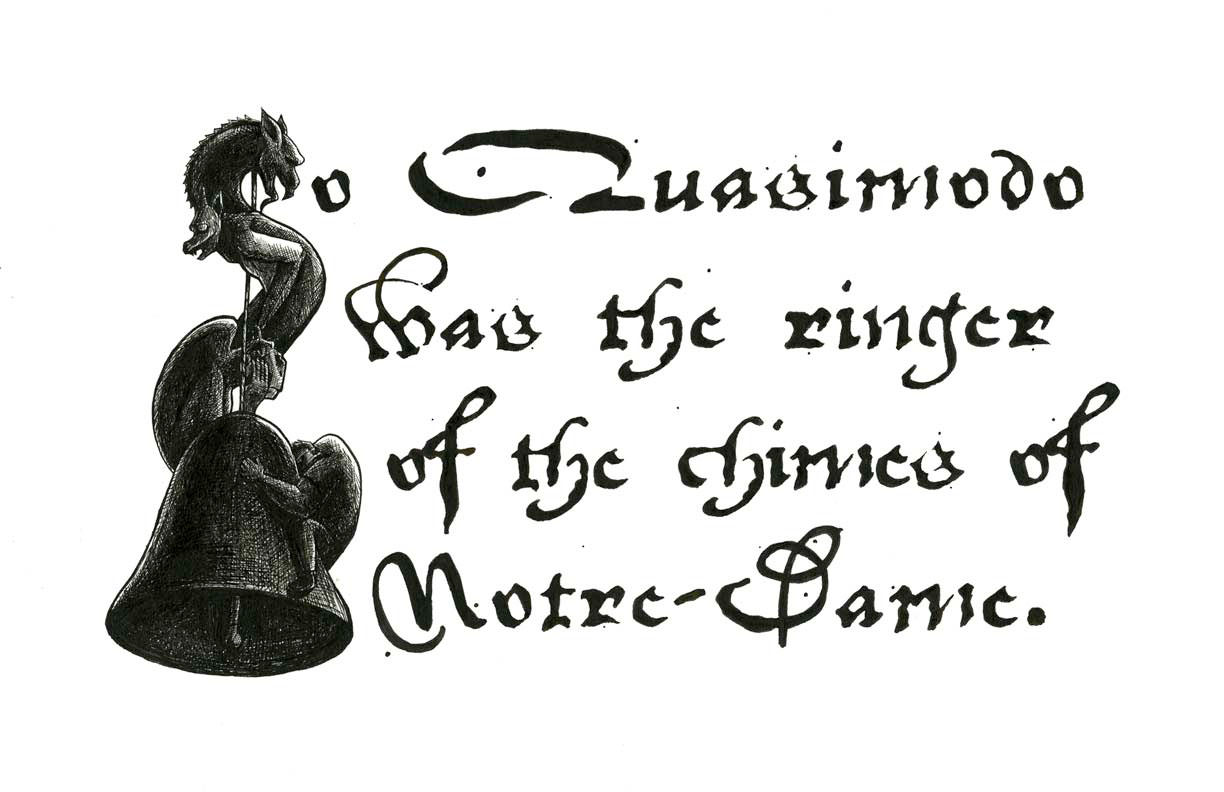 So Quasimodo
was the ringer
of the chimes of
Notre-Dame.